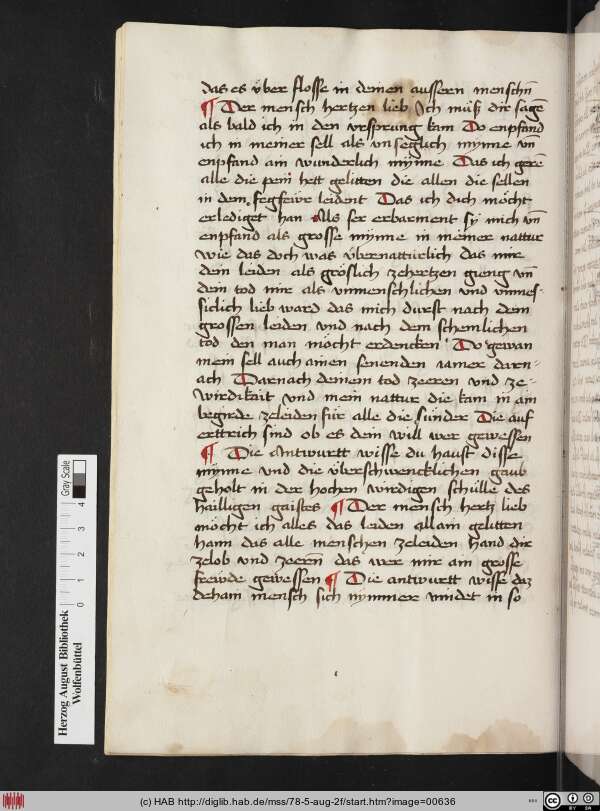 das es über flosse in deinen aussern menschn̄
¶ Der mensch hertzen lieb Ich müß dir sagē
als bald ich in den vrsprung kam Do enpfand
ich in meiner sell als vnseglich mynne vn̄
enpfand ain wunderlich mynne Das ich gerē
alle die pein hett gelitten die allen die sellen
in dem fegfeivr leident Das ich dich möcht
erlediget han Als ser erbarment sy mich vn̄
enpfand als grosse mynne in meiner nattur
wie das doch was übernatturlich das mir
dein leiden als gröslich zehertzen gieng vn̄
dein tod mir als vnmenschlichen vnd vnmes-
siclich lieb ward das mich durst nach dem
grossen leiden vnd nach dem schemlichen
tod den man möcht erdencken Do gewan
mein sell auch ainen senenden iamer darn-
ach Darnach deinem tod zeeren vnd ze-
wirdikait vnd mein nattur die kam in ain
begirde zeleiden für alle die sünder Die auf
erttrich sind ob es dein will wer gewessen
¶ Die Antwurtt wisse du haust disse
mynne vnd die überschwencklichen gaub
geholt in der hochen wirdigen schülle des
hailligen gaistes ¶ Der mensch hertz lieb
möcht ich alles das leiden allain gelitten
hann das alle menschen zeleiden hand dir
zelob vnd zeern̄ das wer mir ain grosse
frewde gewessen ¶ Die antwurtt wisse daz
dehain mensch sich nymmer vindet in so
Herzog August Bibliothek
Wolfenbüttel
0 1 2 3 4
Gray Scale
(c) HAB http://diglib.hab.de/mss/78-5-aug-2f/start.htm?image=00636
CC BY SA